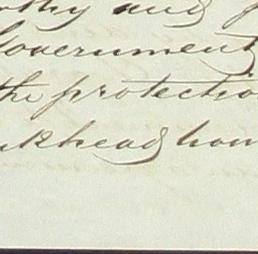 othy and
Government
the protectio
nkhead hom